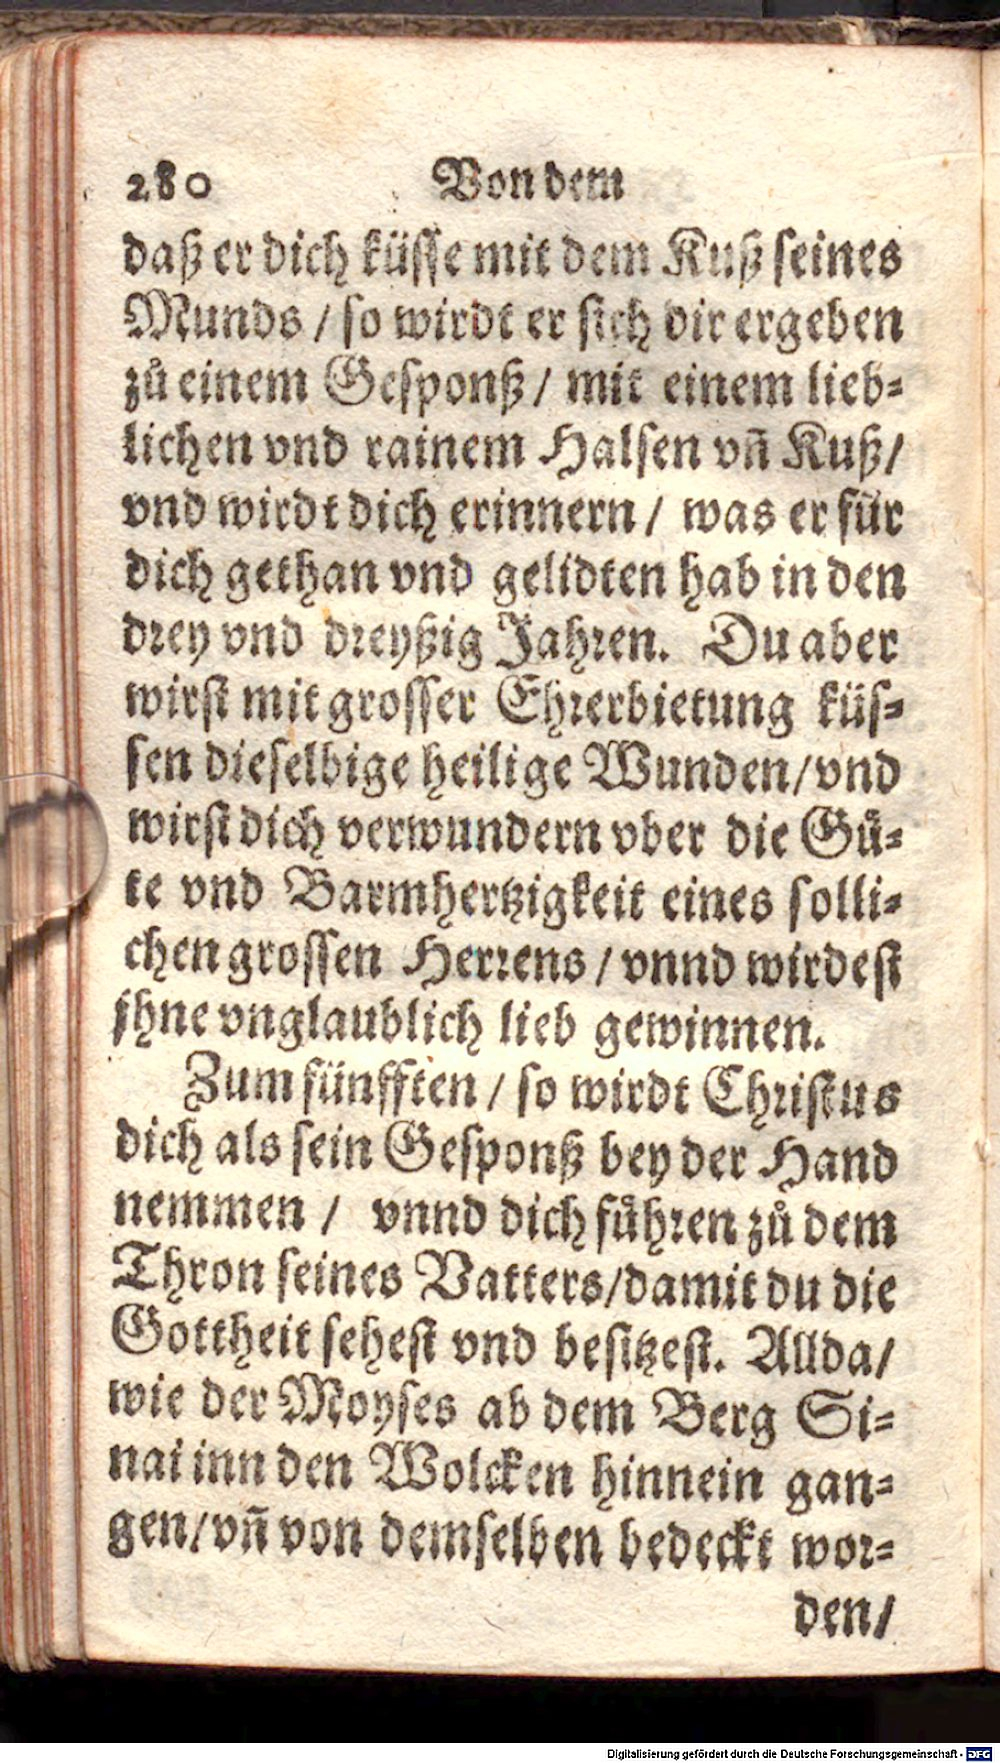 280 Von dem
daß er dich küsse mit dem Kuß seines
Munds / so wirdt er sich dir ergeben
zů einem Gesponß / mit einem lieb-
lichen vnd rainem Halsen vñ Kuß /
vnd wirdt dich erinnern / was er für
dich gethan vnd gelidten hab in den
drey vnd dreyßig Jahren. Du aber
wirst mit grosser Ehrerbietung küs-
sen dieselbige heilige Wunden / vnd
wirst dich verwundern vber die Gü-
te vnd Barmhertzigkeit eines solli-
chen grossen Herrens / vnnd wirdest
jhne vnglaublich lieb gewinnen.
Zum fünfften / so wirdt Christus
dich als sein Gesponß bey der Hand
nemmen / vnnd dich führen zů dem
Thron seines Vatters / damit du die
Gottheit sehest vnd besitzest. Allda /
wie der Moyses ab dem Berg Si-
nai inn den Wolcken hinnein gan-
gen / vñ von demselben bedeckt wor-
den /
Digitalisierung gefördert durch die Deutsche Forschungsgemeinschaft - DFG